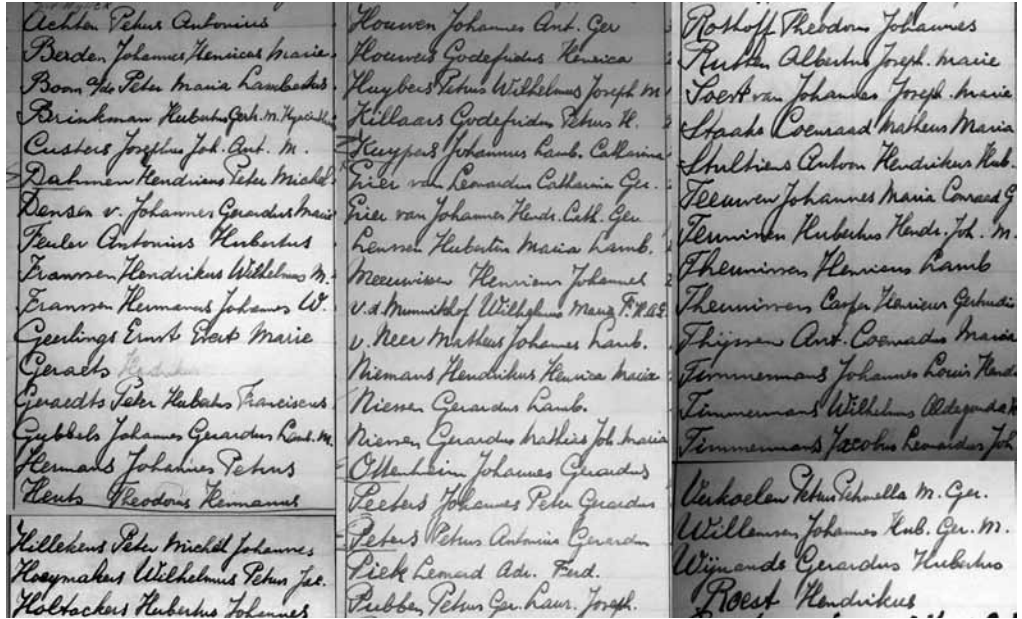 Achten Petrus Antonius
Berden Johannes Henricus Marie
Boom op de Peter Maria Lambertus
Brinkman Hubertus Gerh. M. Hyacinthus
Custers Josephus Joh. Ant. M.
Dahmen Hendricus Peter Michel
Densen v. Johannes Gerardus Maria
Feuler Antonius Hubertus
Franssen Hendrikus Wilhelmus M.
Franssen Hermanus Johannes W.
Geerlings Ernst Evert Marie
Geraets Hendrikus
Geraedts Peter Hubertus Franciscus
Gybbels Johannes Gerardus Lamb. M.
Hermans Johannes Petrus
Heuts Theodorus Hermanus
Hillekens Peter Michël Johannes
Hoeymakers Wilhelmus Petrus Jac.
Holtackers Hubertus Johannes
Houwen Johannes Ant. Ger
Houwers Godefridus Henrica
Huybers Petrus Wilhelmus Joseph M
Killaars Godefridus Petrus H.
Kuypers Johannes Lamb. Catharina
Grier van Leonardus Catharina Ger.
Grier van Johannes Hendr. Cath. Ger
Lenssen Hubertus Maria Lamb.
Meeuwissen Henricus Johannes
v.d. Munnikhof Wilhelmus Maria
v. Neer Matheus Johannes Lamb.
Niemans Hendrikus Henrica Maria
Niessen Gerardus Lamb.
Niessen Gerardus Mathias Joh. Maria
Ottenheim Johannes Gerardus
Peeters Johannes Peter Gerardus
Peters Petrus Antonius Gerardus
Piek Leonard Adr. Ferd.
Pubben Petrus Ger. Laur. Joseph.
Rothoff Theodorus Johannes
Rutten Albertus Joseph. Marie
Soest van Johannes Joseph. Marie
Staaks Coenraad Matheus Maria
Stultiens Antoon Hendrikus Hub.
Teeuwen Johannes Maria Conraad G
Teunissen Hubertus Hendr. Joh. M.
Theunissen Henricus Lamb
Theunissen Casper Henricus Gertrudis
Thijssen Ant. Coenradus Maria
Timmermans Johannes Louis Hendr
Timmermans Wilhelmus Aldegonda
Timmermans Jacobus Leonardus Joh
Verkoelen Petrus Petronella M. Ger.
Willemsen Johannes Hub. Ger. M.
Wijnands Gerardus Hubertus
Roest Hendrikus